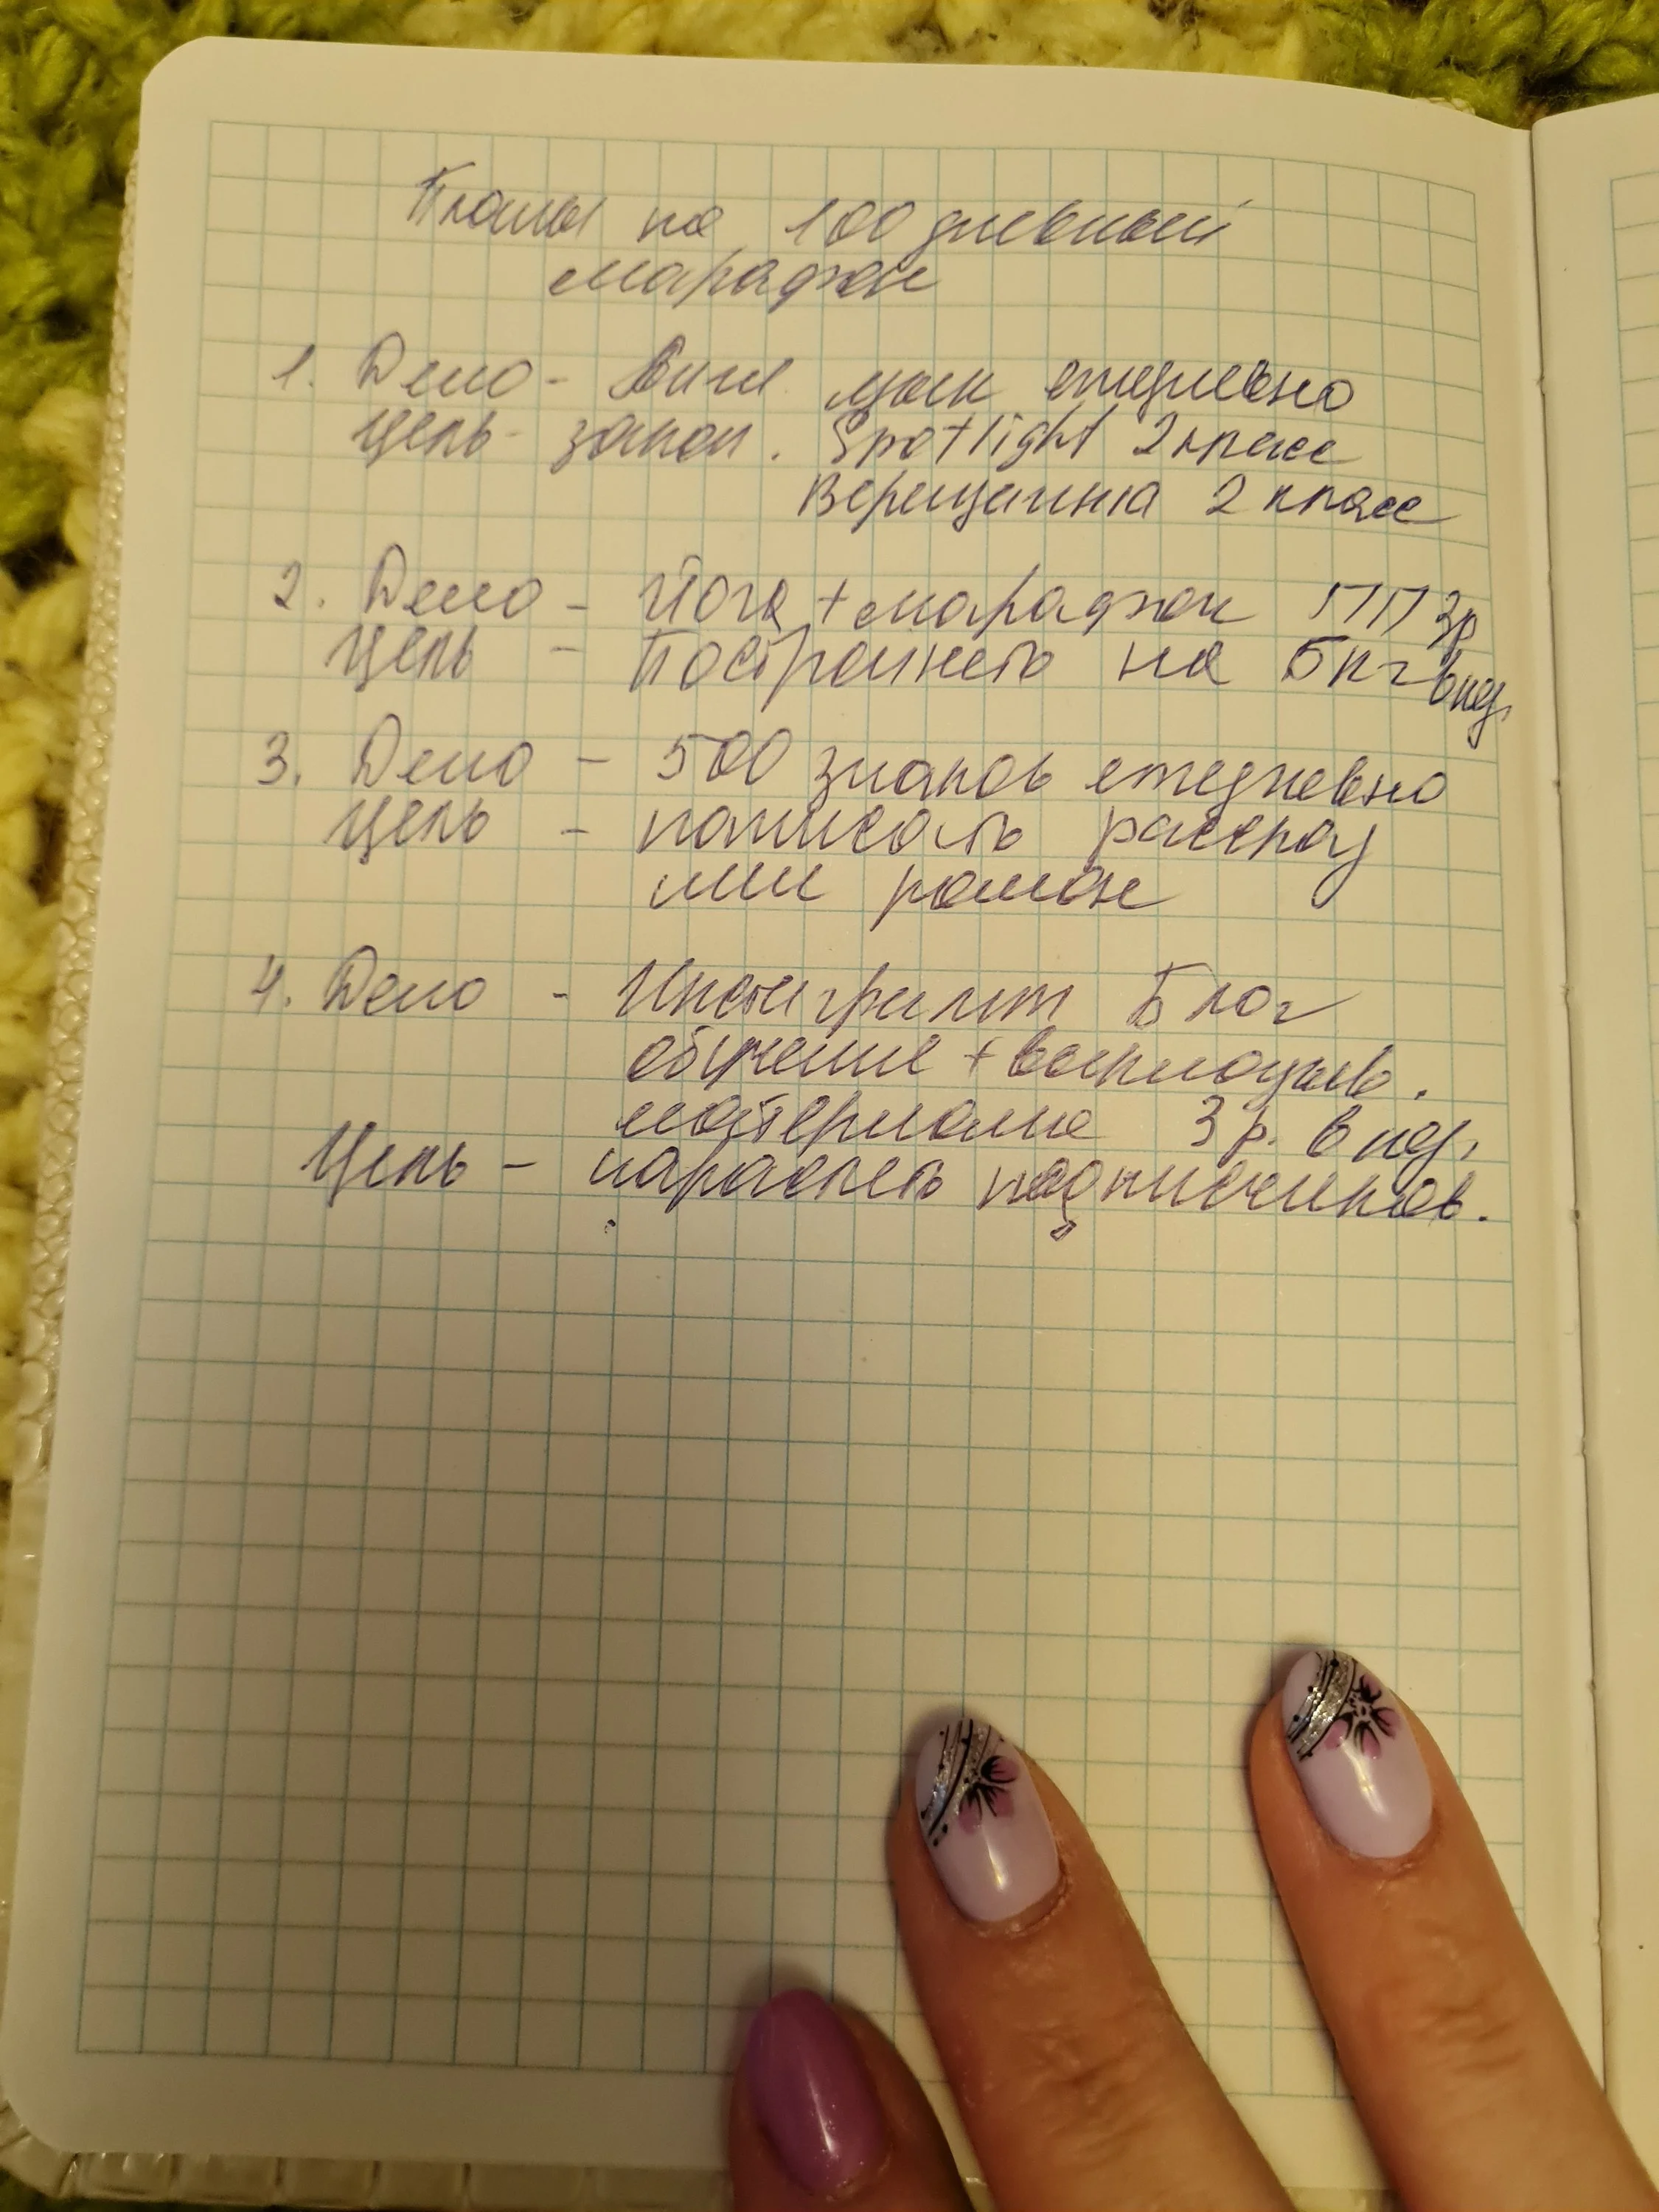 Планы на 100 дневный
марафон
1. Дело - Англ. язык ежедневно
Цель - закон. Spotlight 2 класс
Верещагина 2 класс
2. Дело - Йога + марафон ПП 3р
Цель - Постройнеть на 5 кг в нед.
3. Дело - 500 знаков ежедневно
Цель - написать рассказ
или роман
4. Дело - Инстаграмм Блог
обучение + выкладыв.
материала 3 р. в нед.
Цель - нарастить подписчиков.